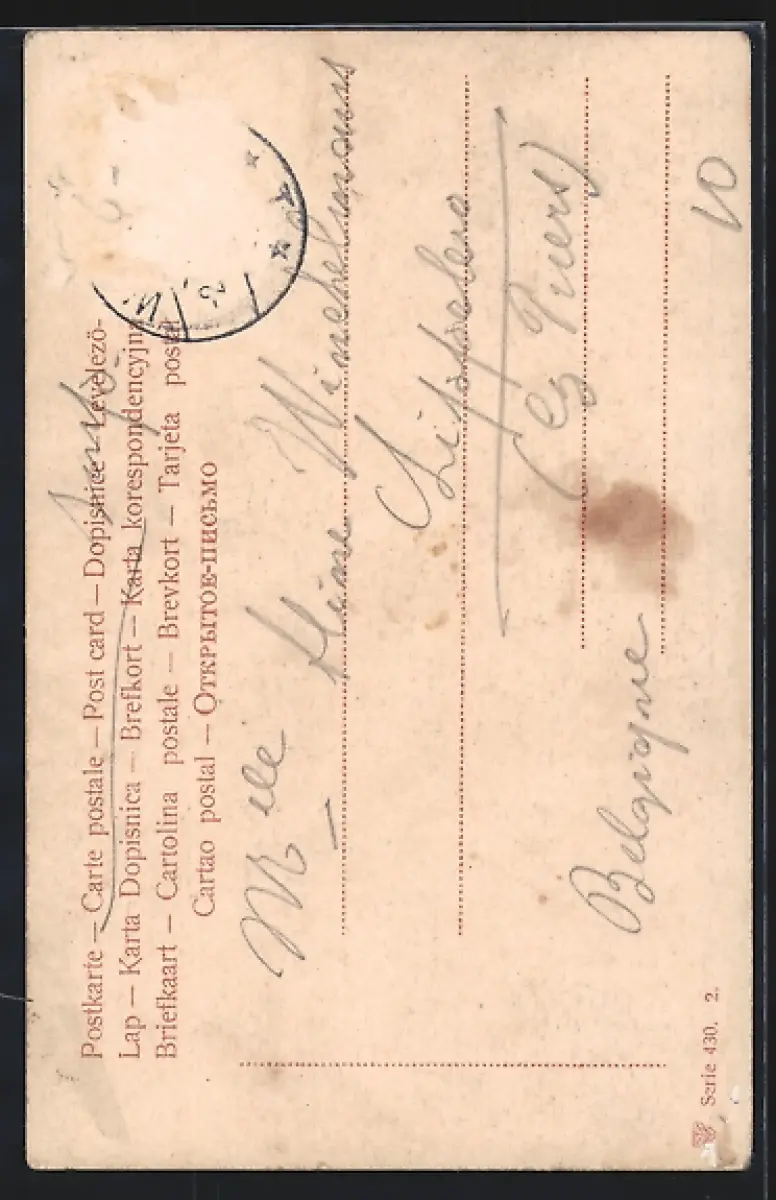 Postkarte – Carte postale – Post card – Dopisnice – Levelező-
Lap – Karta Dopisnica – Brefkort – Karta korespondencyjna
Briefkaart – Cartolina postale – Brevkort – Tarjeta postal
Cartao postal – Открытое-письмо
Melle
Lippeloo
(by Puers)
Belgique
10
Serie 430. 2.